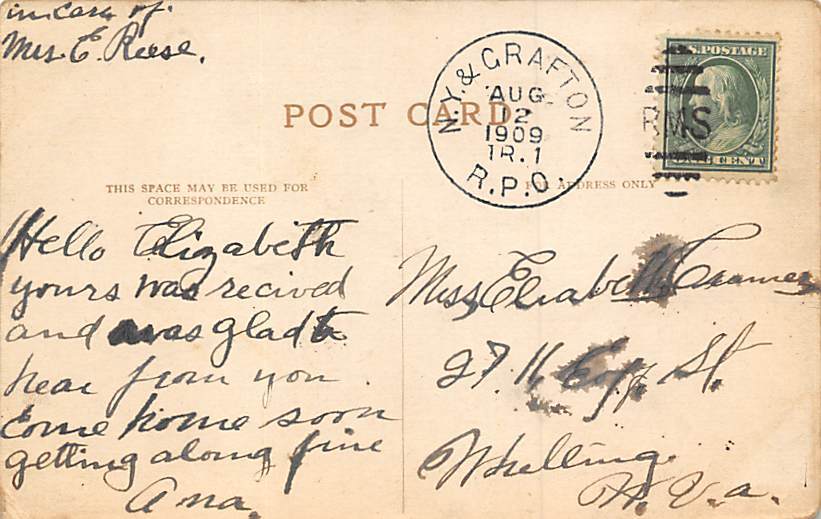 in Care of.
Mrs. E. Reese.
POST CARD
N.Y. & GRAFTON
AUG
12
1909
TR. 1
R.P.O.
U.S. POSTAGE
RMS
ONE CENT
THIS SPACE MAY BE USED FOR
CORRESPONDENCE
FOR ADDRESS ONLY
Hello Elizabeth
yours was recived
and was glad to
hear from you
come home soon
getting along fine
Ana.
Miss Elizabeth Cramer
27. 11 St.
Whelling
W. V. a.